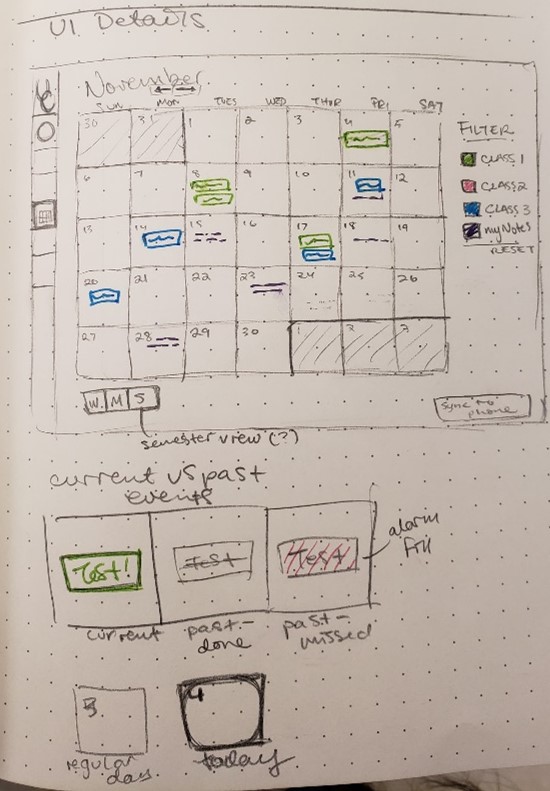 UI Details
November
SUN MON TUES WED THUR FRI SAT
30 31 1 2 3 4 5
6 7 8 9 10 11 12
13 14 15 16 17 18 19
20 21 22 23 24 25 26
27 28 29 30 1 2 3
FILTER
CLASS 1
CLASS 2
CLASS 3
myNotes
RESET
W M S
sync to phone
semester view (?)
current vs past
events
Test! Test Test
alarm
current past- past-
done missed
3 4
regular today
day